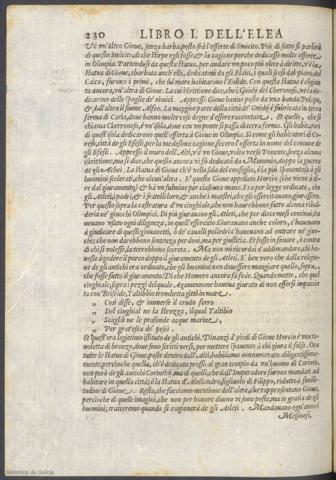 230 LIBRO I. DELL'ELEA
V'è un'altro Gioue, senza barba, posto frà l'offerte di Smicito. Più di sotto si parlerà
di questo Smicito, di che stirpe egli fosse, & la cagione perche dedicasse molte offerte
in Olimpia. Partendosi da questa statua, per andar vn poco più oltre à dritto, v'è la
statua di Gioue, sbarbata anch'ella, dedicataui da gli Elaiti, i quali scesi dal piano del
Caico, furono i primi, che sul mare habitino l'Eolide. Con questa statua è congiun
ta ancora, vn'altra di Gioue. La cui iscrittione dice, che i Gnidij del Cherroneso, ve la de
dicarono delle spoglie de' nimici. Appresso Gioue hanno posto da vna banda Pelope,
& dall'altra il fiume Alfeo. La maggior parte della città de' Gnidij è fabricata in terra
ferma di Caria, doue hanno molte cose degne d'essere raccontate, & quello, che si
chiama Cherroneso, è vn'isola, doue con vn ponte si passa di terra ferma. Gli habitatori
di quest'isola dedicarono quelle offerte à Gioue in Olimpia. Si come gli habitatori di Co-
resso, città de gli Efesij, per la medesima cagione, fecero l'offerta in nome del comune de
gli Efesij. Appresso il muro dell'Alti, v'è vn Gioue, volto verso Ponente, senz'alcuna
iscrittione, ma si dice, che questo ancora vi fù dedicato da Mummio, doppo la guerra
de gli Achei. La statua di Gioue ch'è nella sala del consiglio, è la più spauentosa à gli
huomini federati, che alcun'altra. E' questo Gioue appellato Horcio (che viene à di-
re dal giuramento) & hà vn fulmine per ciascuna mano. Era per legge ordinato, che
gli Atleti, i padri, & i fratelli loro, & anche i maestri, che gli essercitauano, giurassero
Per questo sopra le castrature d'vn cinghiale, che non haurebbono fatto alcuna ribal-
deria ne' giuochi Olimpici. Di più giurauano gli Atleti, che per dieci mesi continui ha
ueuano vsato ogni diligenza, in quell'essercitio. Giurauano anche coloro, ch'haueuano
à giudicare di questi giouanetti, ò de' caualli polledri c'haueuano ad entrare ne' giuo-
chi; che non darebbono sentenza per doni, ma per giustitia. Et fosse in fauore, ò contra
di chi si volesse, la terrebbono secreta. Ma non mi ricordai d'addimandare, che hab-
biano à godere il porco doppo il giuramento de gli Atleti. E' ben vero che dalla religio-
ne de gli antichi era ordinato, che gli huomini non douessero mangiare quello, sopra,
che, fosse fatto il giuramento. Di che Homero ancora fà fede. Quando mette, che quel
cinghiale, sopra i pezzi del quale, Agamennone haueua giurato di non essersi impaccia-
to con Briseide, Taltibio trombetta gittò in mare.
„ Così disse, & immerse il crudo ferro
„ Del cinghial ne la strozza, il qual Taltibio
„ Scagliò ne le profonde acque marine,
„ Per grat'esca de' pesci.
Et quest'era legittimo istituto de gli antichi. Dinanzi à piedi di Gioue Horcio è vna ta-
uoletta di bronzo, doue sono scritti versi, per mettere spauento à chi giura il falso. Ora
tutte le statue di Gioue, poste dentro dall'Alti, habbiamo annouerato diligentissima-
mente, percioche quella, ch'è dedicata presso al gran tempio da vn'huomo di Corinto,
non però de gli antichi Corinthij, ma di quelli, che dall'Imperadore furono mandati ad
habitare in quella città; è la statua d'Alessandro, figliuolo di Filippo, ridotta à simili-
tudine di Gioue. Resta, che facciamo mentione dell'altre, che rappresentano Gioue,
percioche di quelle imagini, che non per honore diuino vi sono poste, ma in gratia de gli
huomini, tratteremo quando si ragionerà de gli Atleti. Mandarono ogni anno i
Messinesi,
Biblioteca de Galicia